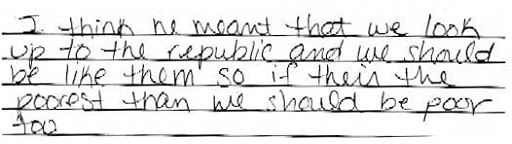 I think he meant that we look
up to the republic and we should
be like them so if their the
poorest than we should be poor
too